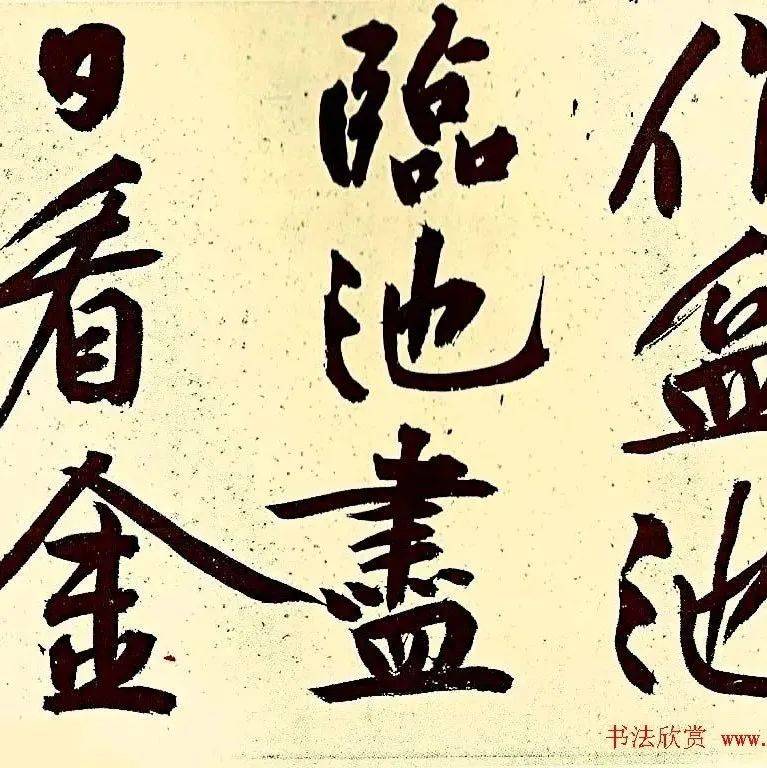 作盆池
臨池盡
日看金
书法欣赏 www.